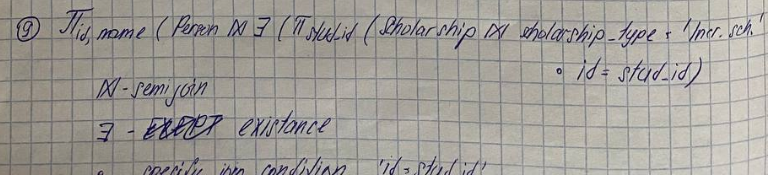 ⑨ π id, name ( Person ⋈ ∃ ( π stud_id ( Scholarship ⋈ sholarship_type = 'Incr. sch.'
∘ id = stud_id)
⋈ - semijoin
∃ - existance
∘ specify join condition 'id = stud_id'